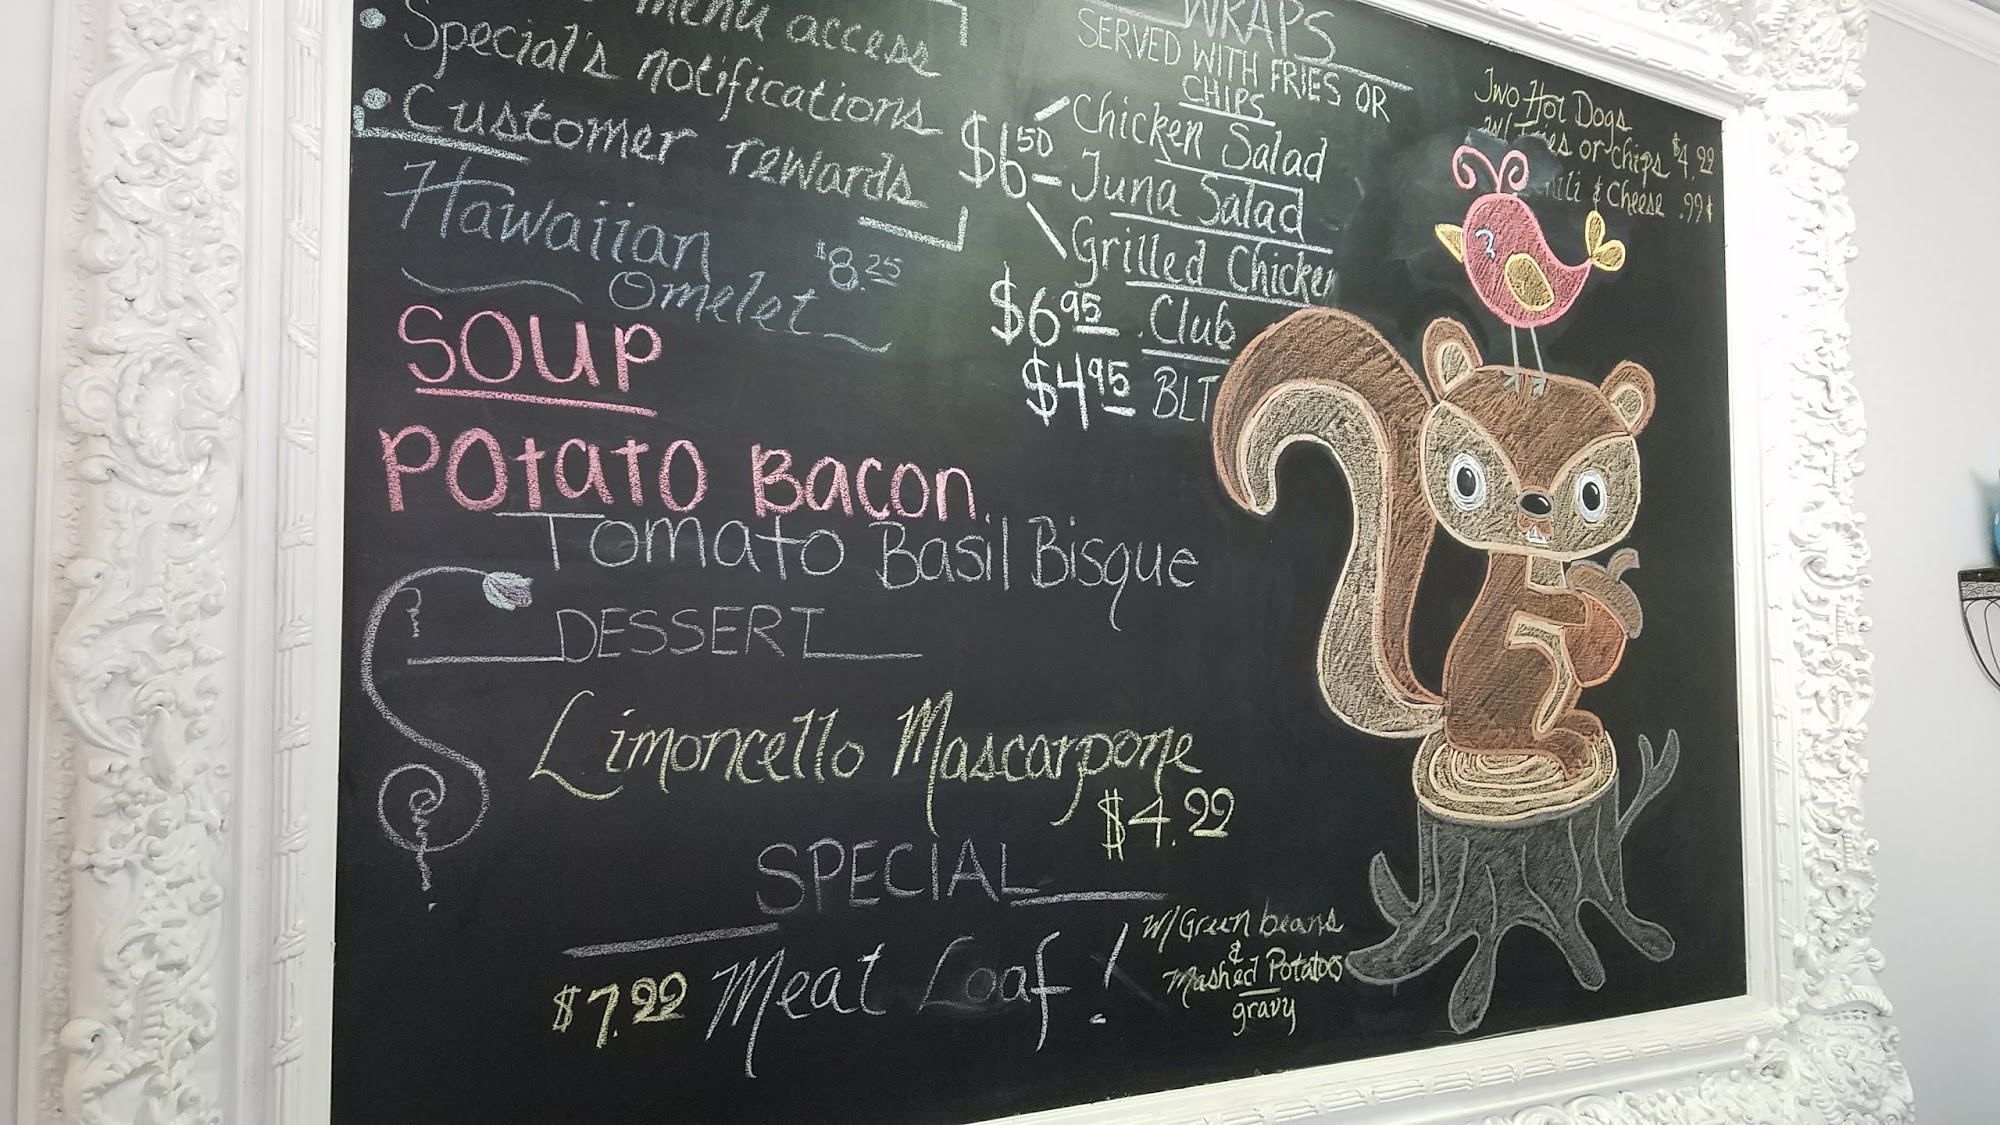 menu access
Special's notifications
Customer rewards
Hawaiian
Omelet
$8.25
SOUP
POTATO BACON
Tomato Basil Bisque
DESSERT
Limoncello Mascarpone
$4.99
SPECIAL
$7.99 Meat Loaf!
w/ Green beans
&
Mashed Potatoes
gravy
WRAPS
SERVED WITH FRIES OR
CHIPS
$6.50
Chicken Salad
Tuna Salad
Grilled Chicken
$6.95 Club
$4.95 BLT
Two Hot Dogs
w/ Fries or chips $4.99
& Cheese .99¢